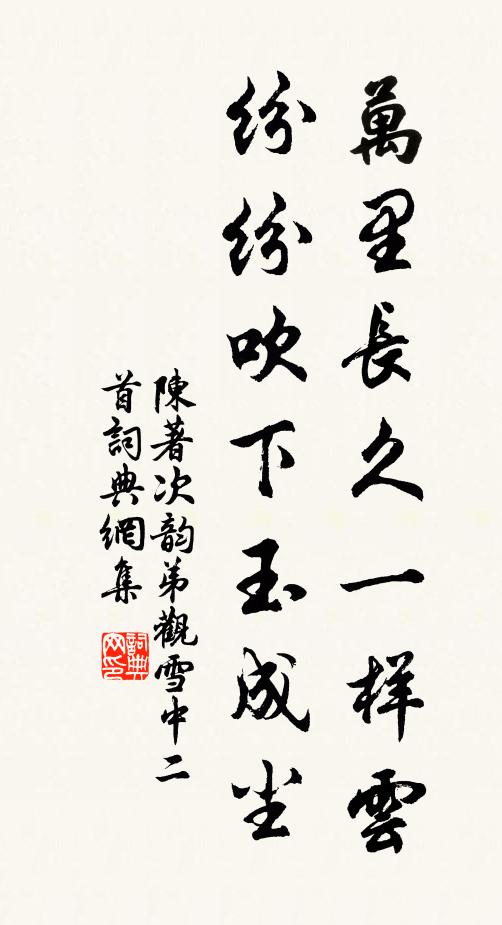 萬里長久一样雲
紛紛吹下玉成尘
陳著次韵弟觀雪中二
首詞典網集
詞典
网印